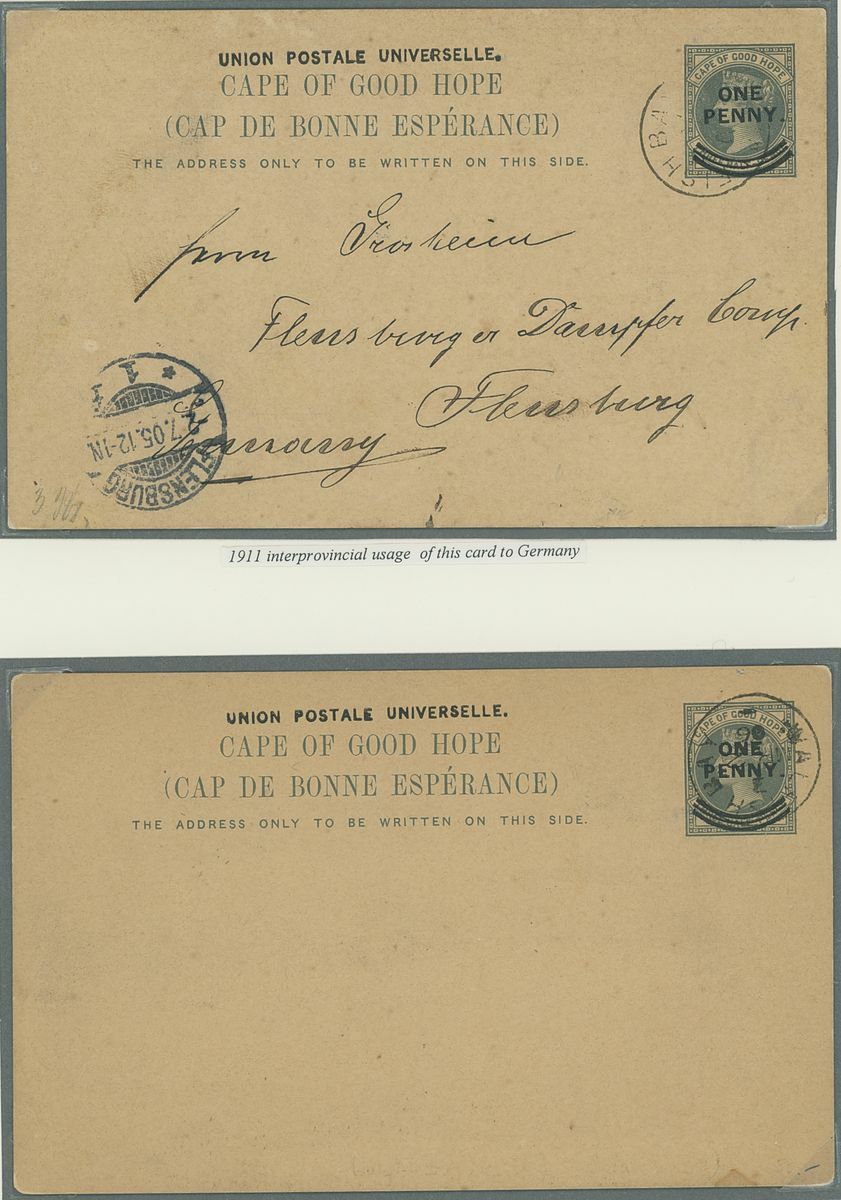 UNION POSTALE UNIVERSELLE.
CAPE OF GOOD HOPE
(CAP DE BONNE ESPÉRANCE)
THE ADDRESS ONLY TO BE WRITTEN ON THIS SIDE.
CAPE OF GOOD HOPE
ONE
PENNY.
ISH BA
Grosheim
Flensburger Dampfer Comp.
Flensburg
Germany
FLENSBURG
7.05.12-1N
1
1911 interprovincial usage of this card to Germany
UNION POSTALE UNIVERSELLE.
CAPE OF GOOD HOPE
(CAP DE BONNE ESPÉRANCE)
THE ADDRESS ONLY TO BE WRITTEN ON THIS SIDE.
CAPE OF GOOD HOPE
ONE
PENNY.